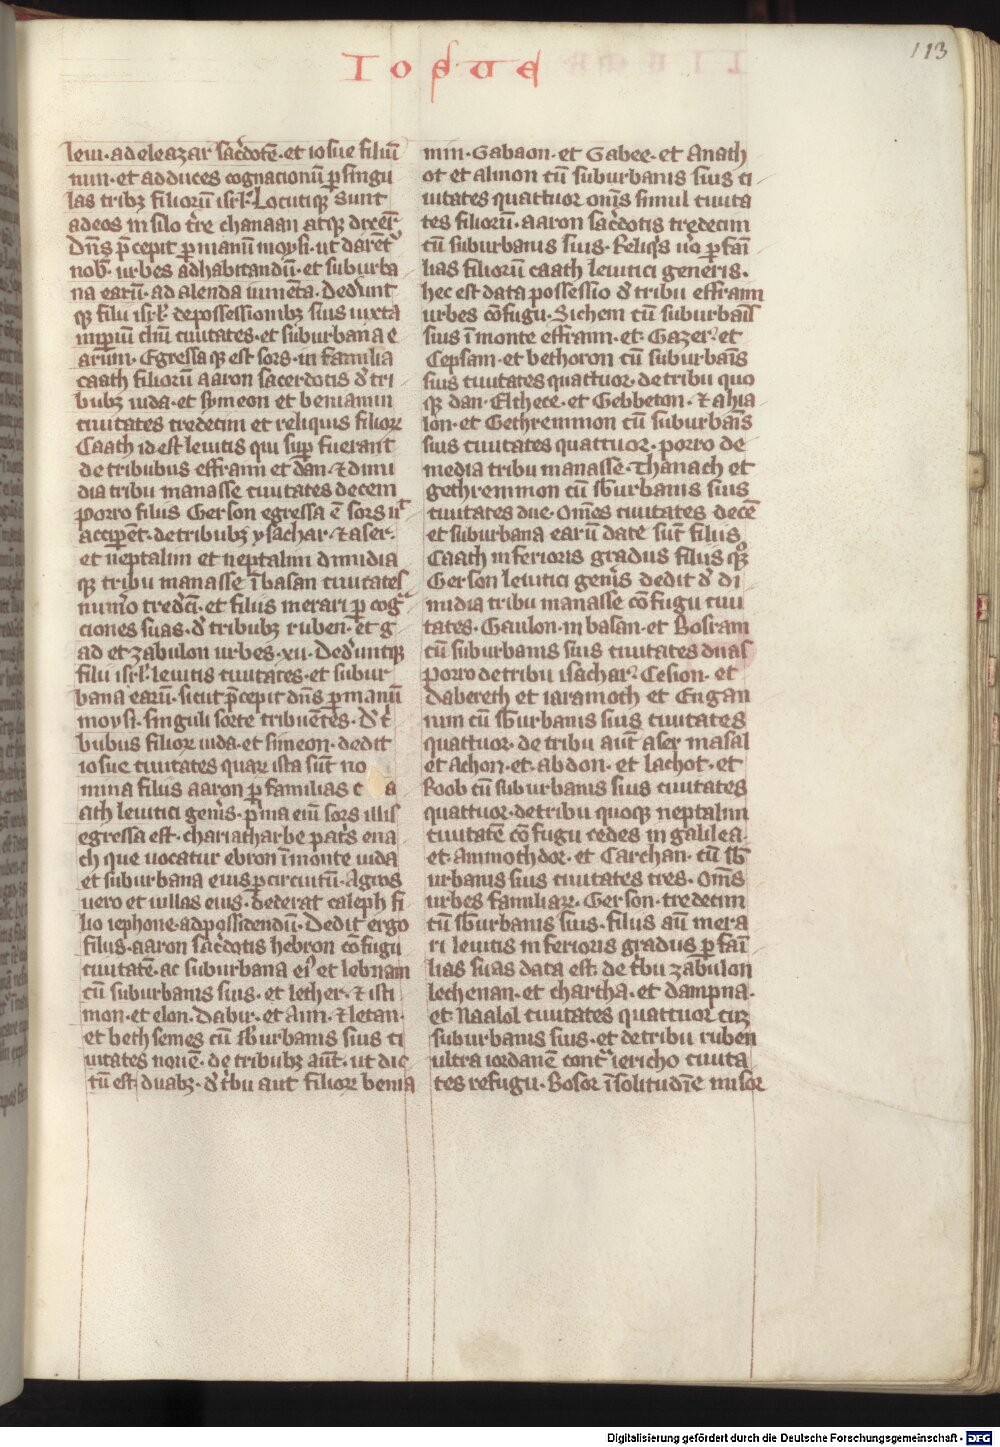 Iosue
113
leui· ad eleazar sac̄dotē· et iosue filiū
nun· et ad duces cognacionū ꝑ singu
las tribꝫ filiorū isrl̓· Locutiqꝫ sunt
ad eos in silo t̓re chanaan atqꝫ dixer̄·
Dn̄s p̄cepit ꝑ manū moysi· ut darēt̓
nob̓· urbes ad habitandū· et suburba
na earū· ad alenda iumēta· Dedunt
qꝫ filii isrl̓· de possessionibꝫ suis iuxta
impiū dn̄i ciuitates· et suburbana e
arūm· Egressa qꝫ est sors· in familia
caath filiorū aaron sacerdotis d̓ tri
bubꝫ iuda· et symeon et beniamin
ciuitates tredecim et reliquis filioꝝ
Caath id est leuitis qui suꝑ fuerant
de tribubus effraim et dan· ⁊ dimi
dia tribu manasse ciuitates decem
porro filiis Gerson egressa ē sors ut
acciꝑēt· de tribubꝫ ysachar· ⁊ aser·
et neptalim et neptalim dimidia
qꝫ tribu manasse ī basan ciuitates
num̓o tredeci̅· et filiis merari ꝑ cog̅
ciones suas· d̓ tribubꝫ ruben· et g
ad et zabulon urbes· xii· Ded̓untqꝫ
filii isrl̓· leuitis ciuitates· et subur
bana earū· sicut p̄cepit dn̄s ꝑ manū
moysi· singuli sorte tribuētes· D̓ t̓
bubus filioꝝ iuda· et simeon· dedit
iosue ciuitates quaꝝ ista sūt no
mina filiis aaron ꝑ familias c a
ath leuitici gen̓is· p̓ma eni̅ sors illis
egressa est· chariatharbe pat̓s ena
ch que uocatur ebron ī monte iuda
et suburbana eius ꝑ circuitū· Agros
uero et uillas eius· dederat caleph fi
lio iephone· ad possidendū· Dedit ergo
filiis· aaron sac̄dotis hebron cōfugii
ciuitatē· ac suburbana ei̓ et lebnam
cū suburbanis suis· et iether· ⁊ isti
mon· et elon· Dabir· et Ain· ⁊ letan·
et beth semes cū sb̓urbanis suis ci
uitates nouē· de tribubꝫ aūt· ut dic
tū est· duabꝫ· d̓ t̓bu aut filioꝝ benia
min· Gabaon· et Gabee· et Anath
ot et almon cū suburbanis suis ci
uitates quattuor om̄s simul ciuita
tes filiorū· aaron sac̄dotis tredecim
cū suburbanis suis· Reliqs uo ꝑ fam̄
lias filiorū caath leuitici generis·
hec est data possessio d̓ tribu effraim
urbes cōfugii· Sichem cū suburbais
suis ī monte effraim· et· Gazer· et
Cepsam· et bethoron cū suburbais
suis ciuitates quattuor· de tribu quo
qꝫ dan· Elthece· et Gebbeton· ⁊ ahia
lon· et Gethremmon cū suburbais
suis ciuitates quattuor· porro de
media tribu manasse· Thanach et
gethremmon cū sb̓urbanis suis
ciuitates due· Omēs ciuitates decē
et suburbana earū date sūt filiis
Caath inferioris gradus filiis qꝫ
Gerson leuitici gen̓is dedit d̓ di
midia tribu manasse cōfugii ciui
tates· Gaulon· in basan· et Bosram
cū suburbanis suis ciuitates duas
porro de tribu isachar· Cesion· et
dabereth et iaramoth et Engan
nim cū sb̓urbanis suis ciuitates
quattuor· de tribu aūt aser masal
et Achon· et· abdon· et lachot· et
Roob cū suburbanis suis ciuitates
quattuor· de tribu quoqꝫ neptalim
ciuitatē cōfugii cedes in galilea·
et· Ammothdor· et Carthan· cū sb̓
urbanis suis ciuitates tres· Om̄s
urbes familiaꝝ· Gerson· tredecim
cū sb̓urbanis suis· filiis aū mera
ri leuitis inferioris gradus ꝑ fam̄
lias suas data est· de t̓bu zabulon
Iechenan· et chartha· et dampna·
et· Naalol ciuitates quattuor cuꝫ
suburbanis suis· et de tribu ruben
ultra iordanē cont̓ iericho ciuita
tes refugii· Bosor ī solitudīe misor
Digitalisierung gefördert durch die Deutsche Forschungsgemeinschaft - DFG